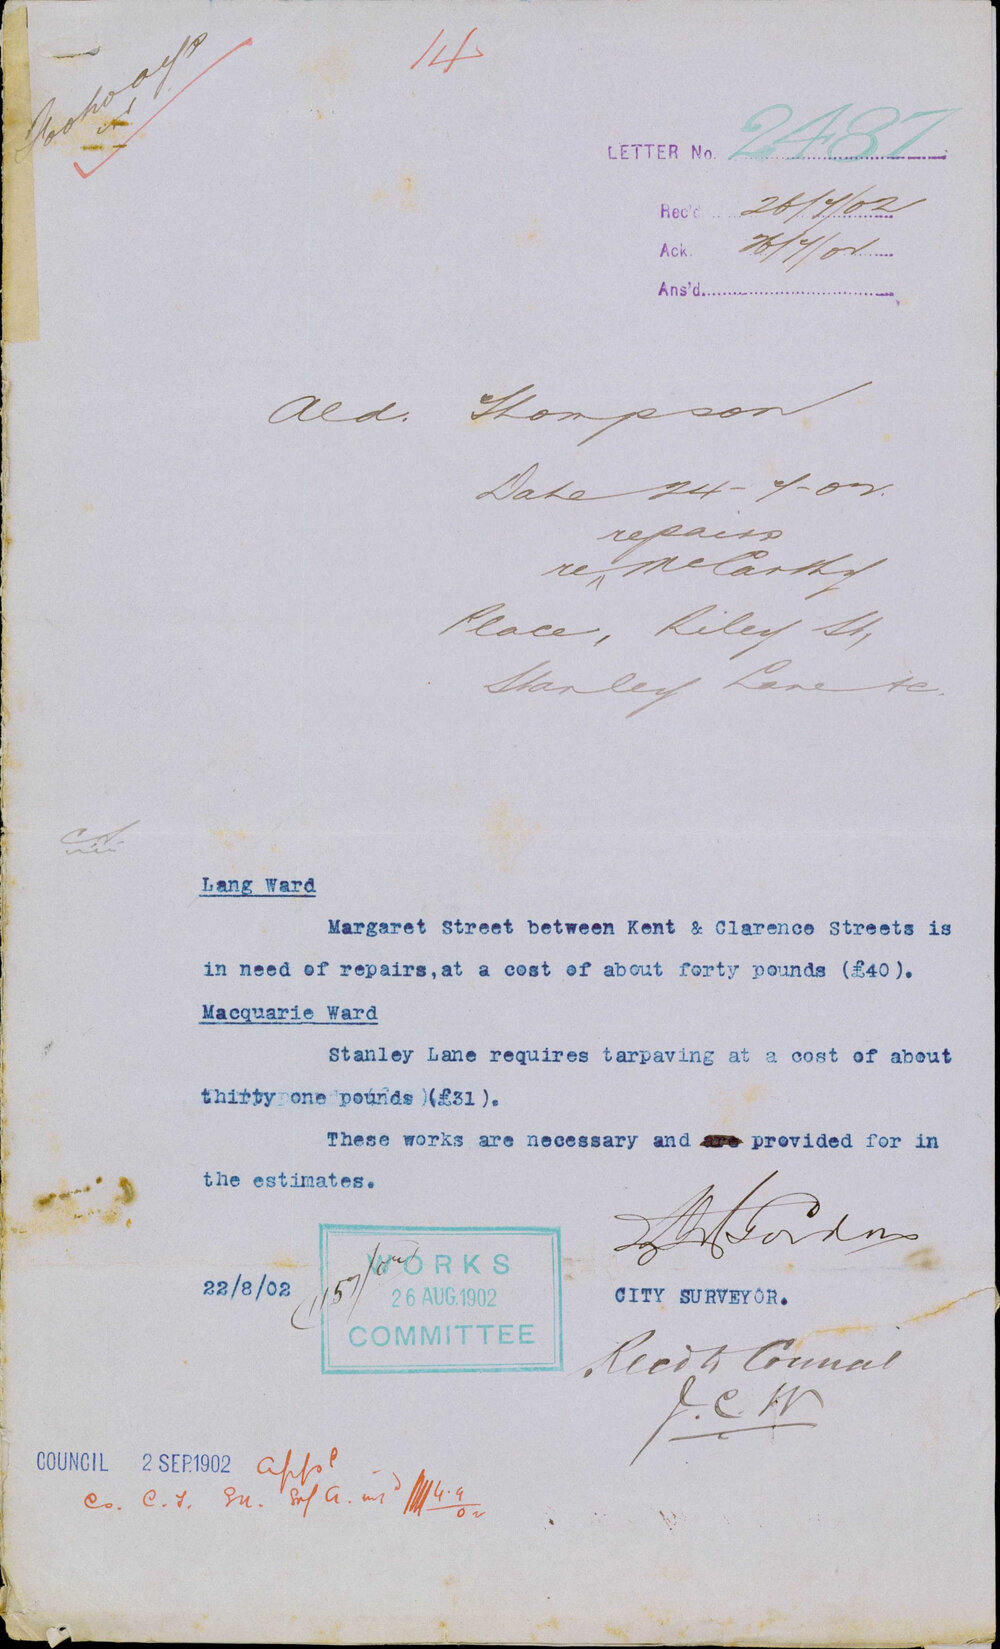 14
LETTER No. 2487
Rec'd 26/7/02
Ack. 26/7/02
Ans'd.
Ald. Thompson
Date 24-7-02.
repairs
re McCarthy
Place, Riley St,
Stanley Lane &c.
Lang Ward
Margaret Street between Kent & Clarence Streets is
in need of repairs, at a cost of about forty pounds (£40).
Macquarie Ward
Stanley Lane requires tarpaving at a cost of about
thirty one pounds (£31).
These works are necessary and are provided for in
the estimates.
Gordon
22/8/02
WORKS
26 AUG. 1902
COMMITTEE
CITY SURVEYOR.
Recd to Council
J.C.W
COUNCIL 2 SEP.1902 appd
Co. C.T.
4.9
02